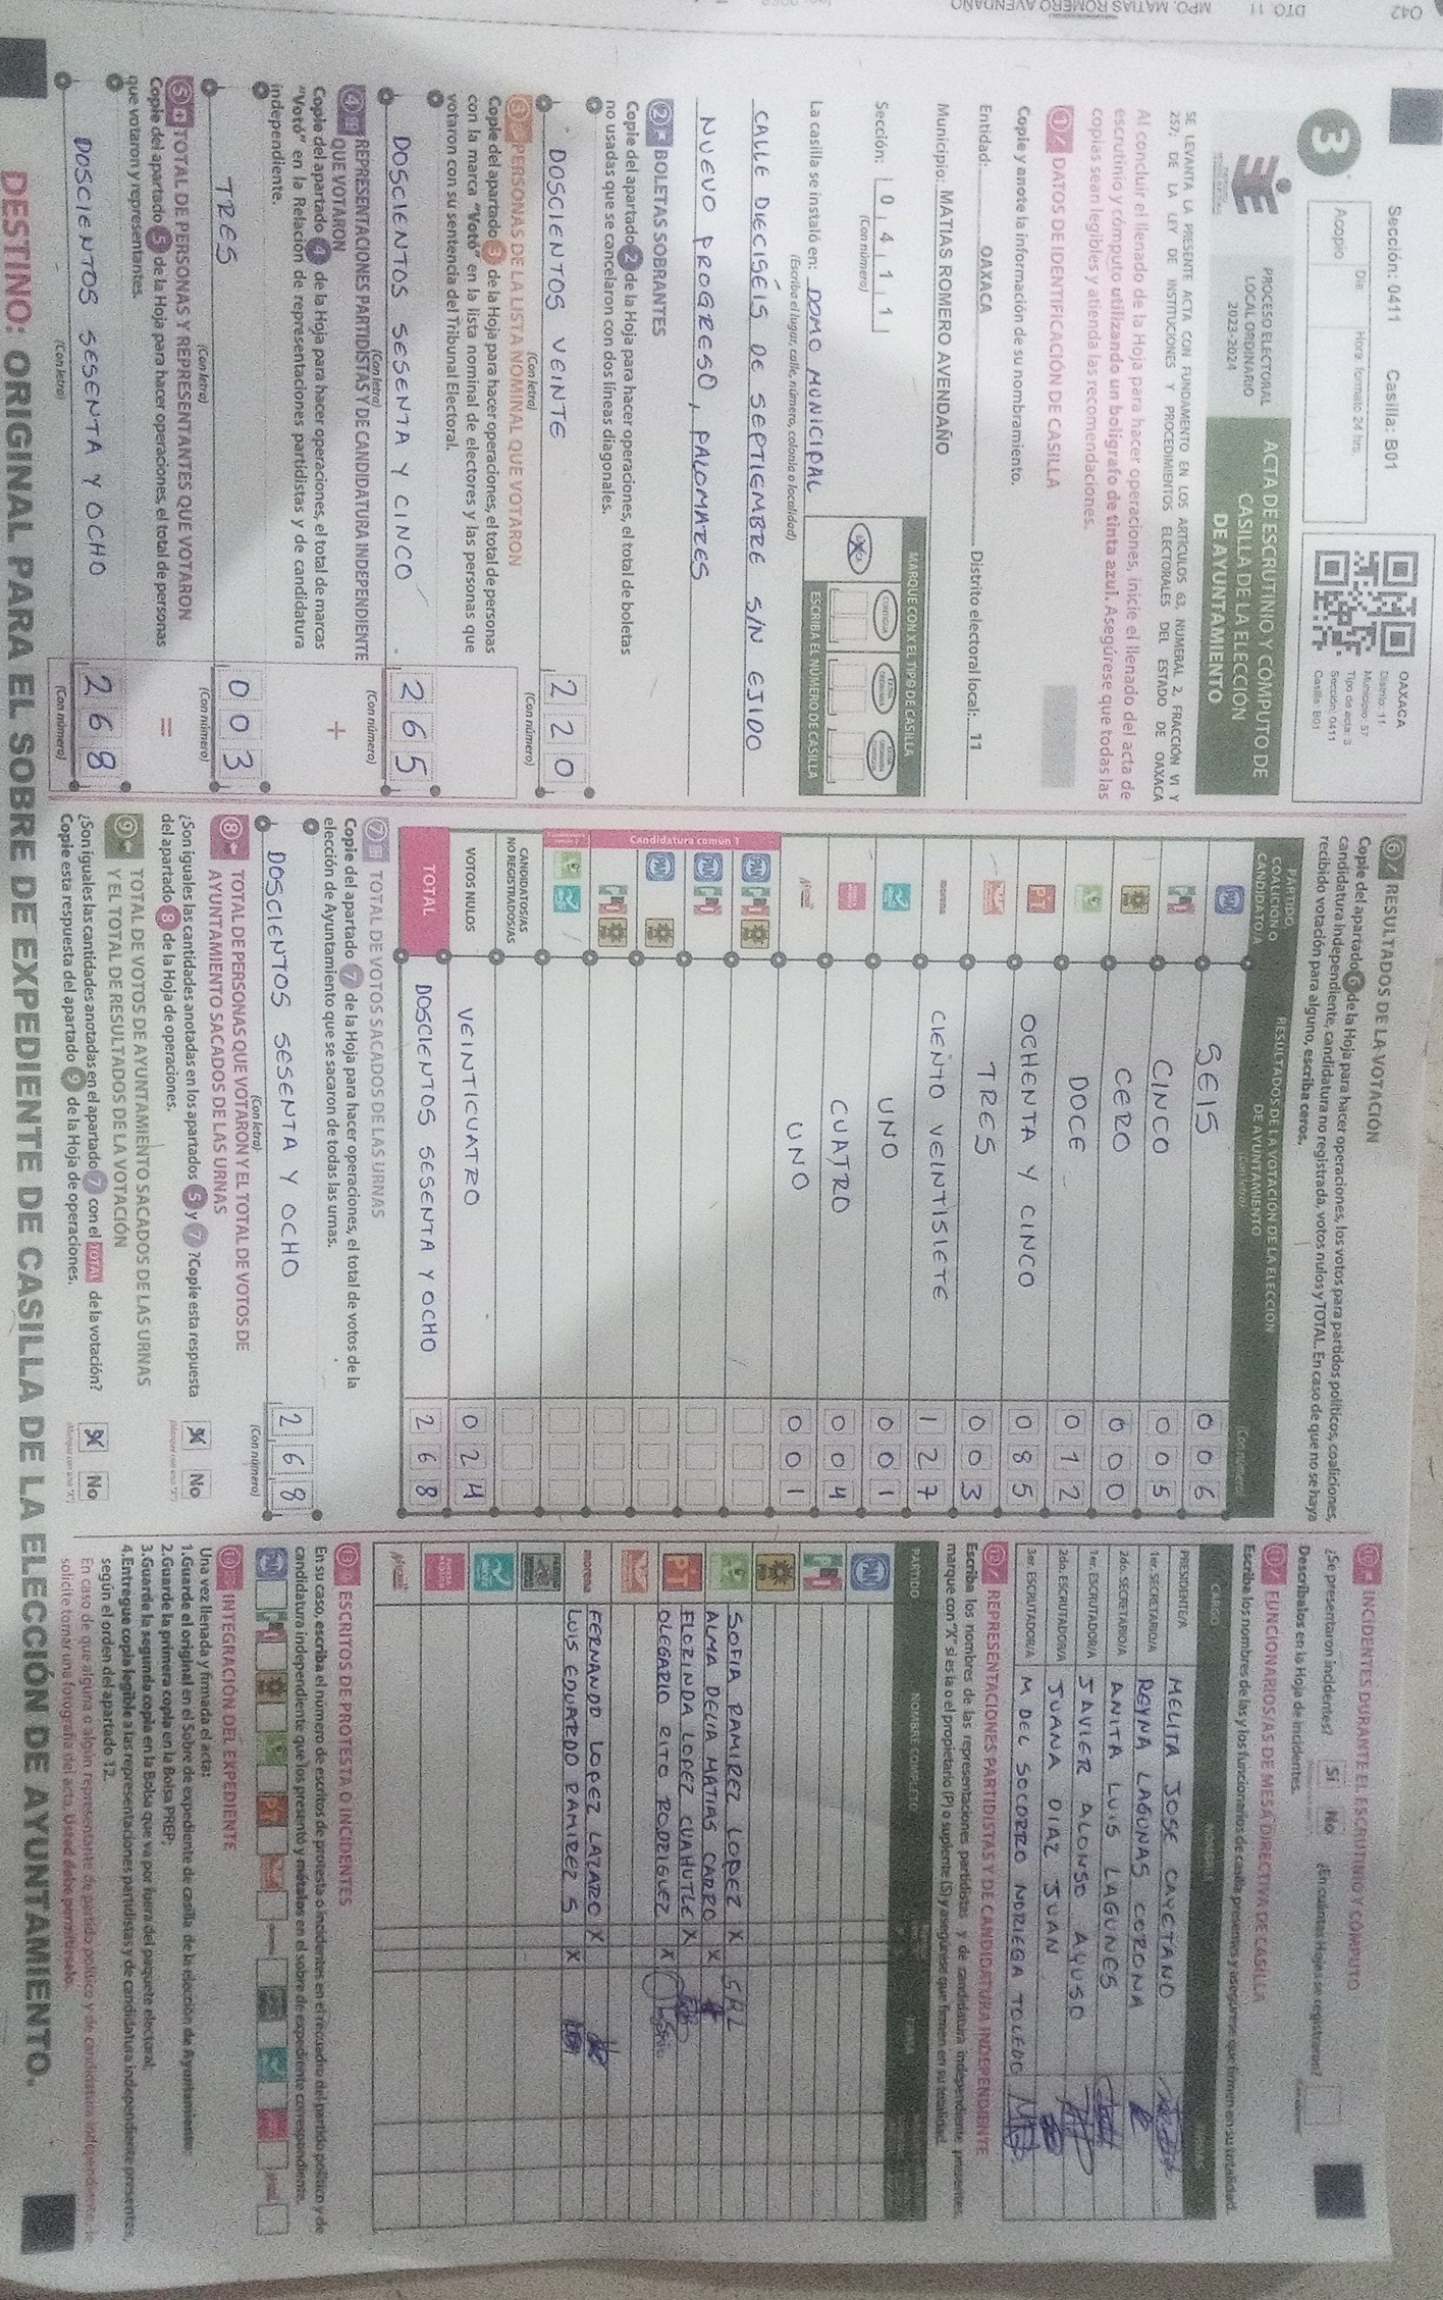 042
DTO. 11
MPO. MATIAS ROMERO AVENDAÑO
Sección: 0411 Casilla: B01
3
Acopio
Día
Hora: formato 24 hrs.
OAXACA
Distrito: 11
Municipio: 57
Tipo de acta: 3
Sección: 0411
Casilla: B01
PROCESO ELECTORAL
LOCAL ORDINARIO
2023-2024
ACTA DE ESCRUTINIO Y CÓMPUTO DE
CASILLA DE LA ELECCIÓN
DE AYUNTAMIENTO
SE LEVANTA LA PRESENTE ACTA CON FUNDAMENTO EN LOS ARTÍCULOS 63, NUMERAL 2, FRACCIÓN VI Y
257; DE LA LEY DE INSTITUCIONES Y PROCEDIMIENTOS ELECTORALES DEL ESTADO DE OAXACA
Al concluir el llenado de la Hoja para hacer operaciones, inicie el llenado del acta de
escrutinio y cómputo utilizando un bolígrafo de tinta azul. Asegúrese que todas las
copias sean legibles y atienda las recomendaciones.
1 DATOS DE IDENTIFICACIÓN DE CASILLA
Copie y anote la información de su nombramiento.
Entidad: OAXACA Distrito electoral local: 11
Municipio: MATIAS ROMERO AVENDAÑO
Sección: 0 4 1 1
(Con número)
MARQUE CON X EL TIPO DE CASILLA
ESCRIBA EL NÚMERO DE CASILLA
La casilla se instaló en: DOMO MUNICIPAL
(Escriba el lugar, calle, número, colonia o localidad)
CALLE DIECISÉIS DE SEPTIEMBRE S/N EJIDO
NUEVO PROGRESO, PALOMARES
2 BOLETAS SOBRANTES
Copie del apartado 2 de la Hoja para hacer operaciones, el total de boletas
no usadas que se cancelaron con dos líneas diagonales.
DOSCIENTOS VEINTE 220
(Con letra) (Con número)
3 PERSONAS DE LA LISTA NOMINAL QUE VOTARON
Copie del apartado 3 de la Hoja para hacer operaciones, el total de personas
con la marca "Votó" en la lista nominal de electores y las personas que
votaron con su sentencia del Tribunal Electoral.
DOSCIENTOS SESENTA Y CINCO 265
(Con letra) (Con número)
4 REPRESENTACIONES PARTIDISTAS Y DE CANDIDATURA INDEPENDIENTE
QUE VOTARON
Copie del apartado 4 de la Hoja para hacer operaciones, el total de marcas
"Votó" en la Relación de representaciones partidistas y de candidatura
independiente.
+
TRES 003
(Con letra) (Con número)
5 TOTAL DE PERSONAS Y REPRESENTANTES QUE VOTARON
Copie del apartado 5 de la Hoja para hacer operaciones, el total de personas
que votaron y representantes.
=
DOSCIENTOS SESENTA Y OCHO 268
(Con letra) (Con número)
6 RESULTADOS DE LA VOTACIÓN
Copie del apartado 6 de la Hoja para hacer operaciones, los votos para partidos políticos, coaliciones,
candidatura independiente, candidatura no registrada, votos nulos y TOTAL. En caso de que no se haya
recibido votación para alguno, escriba ceros.
PARTIDO
COALICIÓN O
CANDIDATO/A
RESULTADOS DE LA VOTACIÓN DE LA ELECCIÓN
DE AYUNTAMIENTO
(Con letra) (Con número)
PAN SEIS 006
PRI CINCO 005
CERO 000
DOCE 012
PT OCHENTA Y CINCO 085
TRES 003
morena CIENTO VEINTISIETE 127
UNO 001
CUATRO 004
UNO 001
Candidatura común 1
CANDIDATOS/AS
NO REGISTRADOS/AS
VOTOS NULOS VEINTICUATRO 024
TOTAL DOSCIENTOS SESENTA Y OCHO 268
7 TOTAL DE VOTOS SACADOS DE LAS URNAS
Copie del apartado 7 de la Hoja para hacer operaciones, el total de votos de la
elección de Ayuntamiento que se sacaron de todas las urnas.
DOSCIENTOS SESENTA Y OCHO 268
(Con letra) (Con número)
8 TOTAL DE PERSONAS QUE VOTARON Y EL TOTAL DE VOTOS DE
AYUNTAMIENTO SACADOS DE LAS URNAS
¿Son iguales las cantidades anotadas en los apartados 5 y 7? Copie esta respuesta
del apartado 8 de la Hoja de operaciones.
Sí No
9 TOTAL DE VOTOS DE AYUNTAMIENTO SACADOS DE LAS URNAS
Y EL TOTAL DE RESULTADOS DE LA VOTACIÓN
¿Son iguales las cantidades anotadas en el apartado 7 con el TOTAL de la votación?
Copie esta respuesta del apartado 9 de la Hoja de operaciones.
Sí No
10 INCIDENTES DURANTE EL ESCRUTINIO Y CÓMPUTO
¿Se presentaron incidentes? Sí No ¿En cuántas Hojas se registraron?
Descríbalos en la Hoja de Incidentes.
11 FUNCIONARIOS/AS DE MESA DIRECTIVA DE CASILLA
Escriba los nombres de las y los funcionarios de casilla presentes y asegúrese que firmen en su totalidad.
CARGO NOMBRES
PRESIDENTE/A MELITA JOSE CAYETANO
1er. SECRETARIO/A REYNA LAGUNAS CORONA
2do. SECRETARIO/A ANITA LUIS LAGUNES
1er. ESCRUTADOR/A JAVIER ALONSO AYUSO
2do. ESCRUTADOR/A JUANA DIAZ JUAN
3er. ESCRUTADOR/A M DEL SOCORRO NORIEGA TOLEDO
12 REPRESENTACIONES PARTIDISTAS Y DE CANDIDATURA INDEPENDIENTE
Escriba los nombres de las representaciones partidistas y de candidatura independiente presentes,
marque con "X" si es la o el propietario (P) o suplente (S) y asegúrese que firmen en su totalidad.
PARTIDO NOMBRE COMPLETO FIRMA
PAN
PRI
SOFIA RAMIREZ LOPEZ X SRL
ALMA DELIA MATIAS CARRO X
PT FLORINDA LOPEZ CUAHUTLE X
OLEGARIO RITO RODRIGUEZ X
morena FERNANDO LOPEZ LAZARO X
LUIS EDUARDO RAMIREZ S X
13 ESCRITOS DE PROTESTA O INCIDENTES
En su caso, escriba el número de escritos de protesta o incidentes en el recuadro del partido político y de
candidatura independiente que los presentó y métalos en el sobre de expediente correspondiente.
14 INTEGRACIÓN DEL EXPEDIENTE
Una vez llenada y firmada el acta:
1.Guarde el original en el Sobre de expediente de casilla de la elección de Ayuntamiento;
2.Guarde la primera copia en la Bolsa PREP;
3.Guarde la segunda copia en la Bolsa que va por fuera del paquete electoral;
4.Entregue copia legible a las representaciones partidistas y de candidatura independiente presentes,
según el orden del apartado 12.
En caso de que alguna o algún representante de partido político y de candidatura independiente, le
solicite tomar una fotografía del acta. Usted debe permitírselo.
DESTINO: ORIGINAL PARA EL SOBRE DE EXPEDIENTE DE CASILLA DE LA ELECCIÓN DE AYUNTAMIENTO.